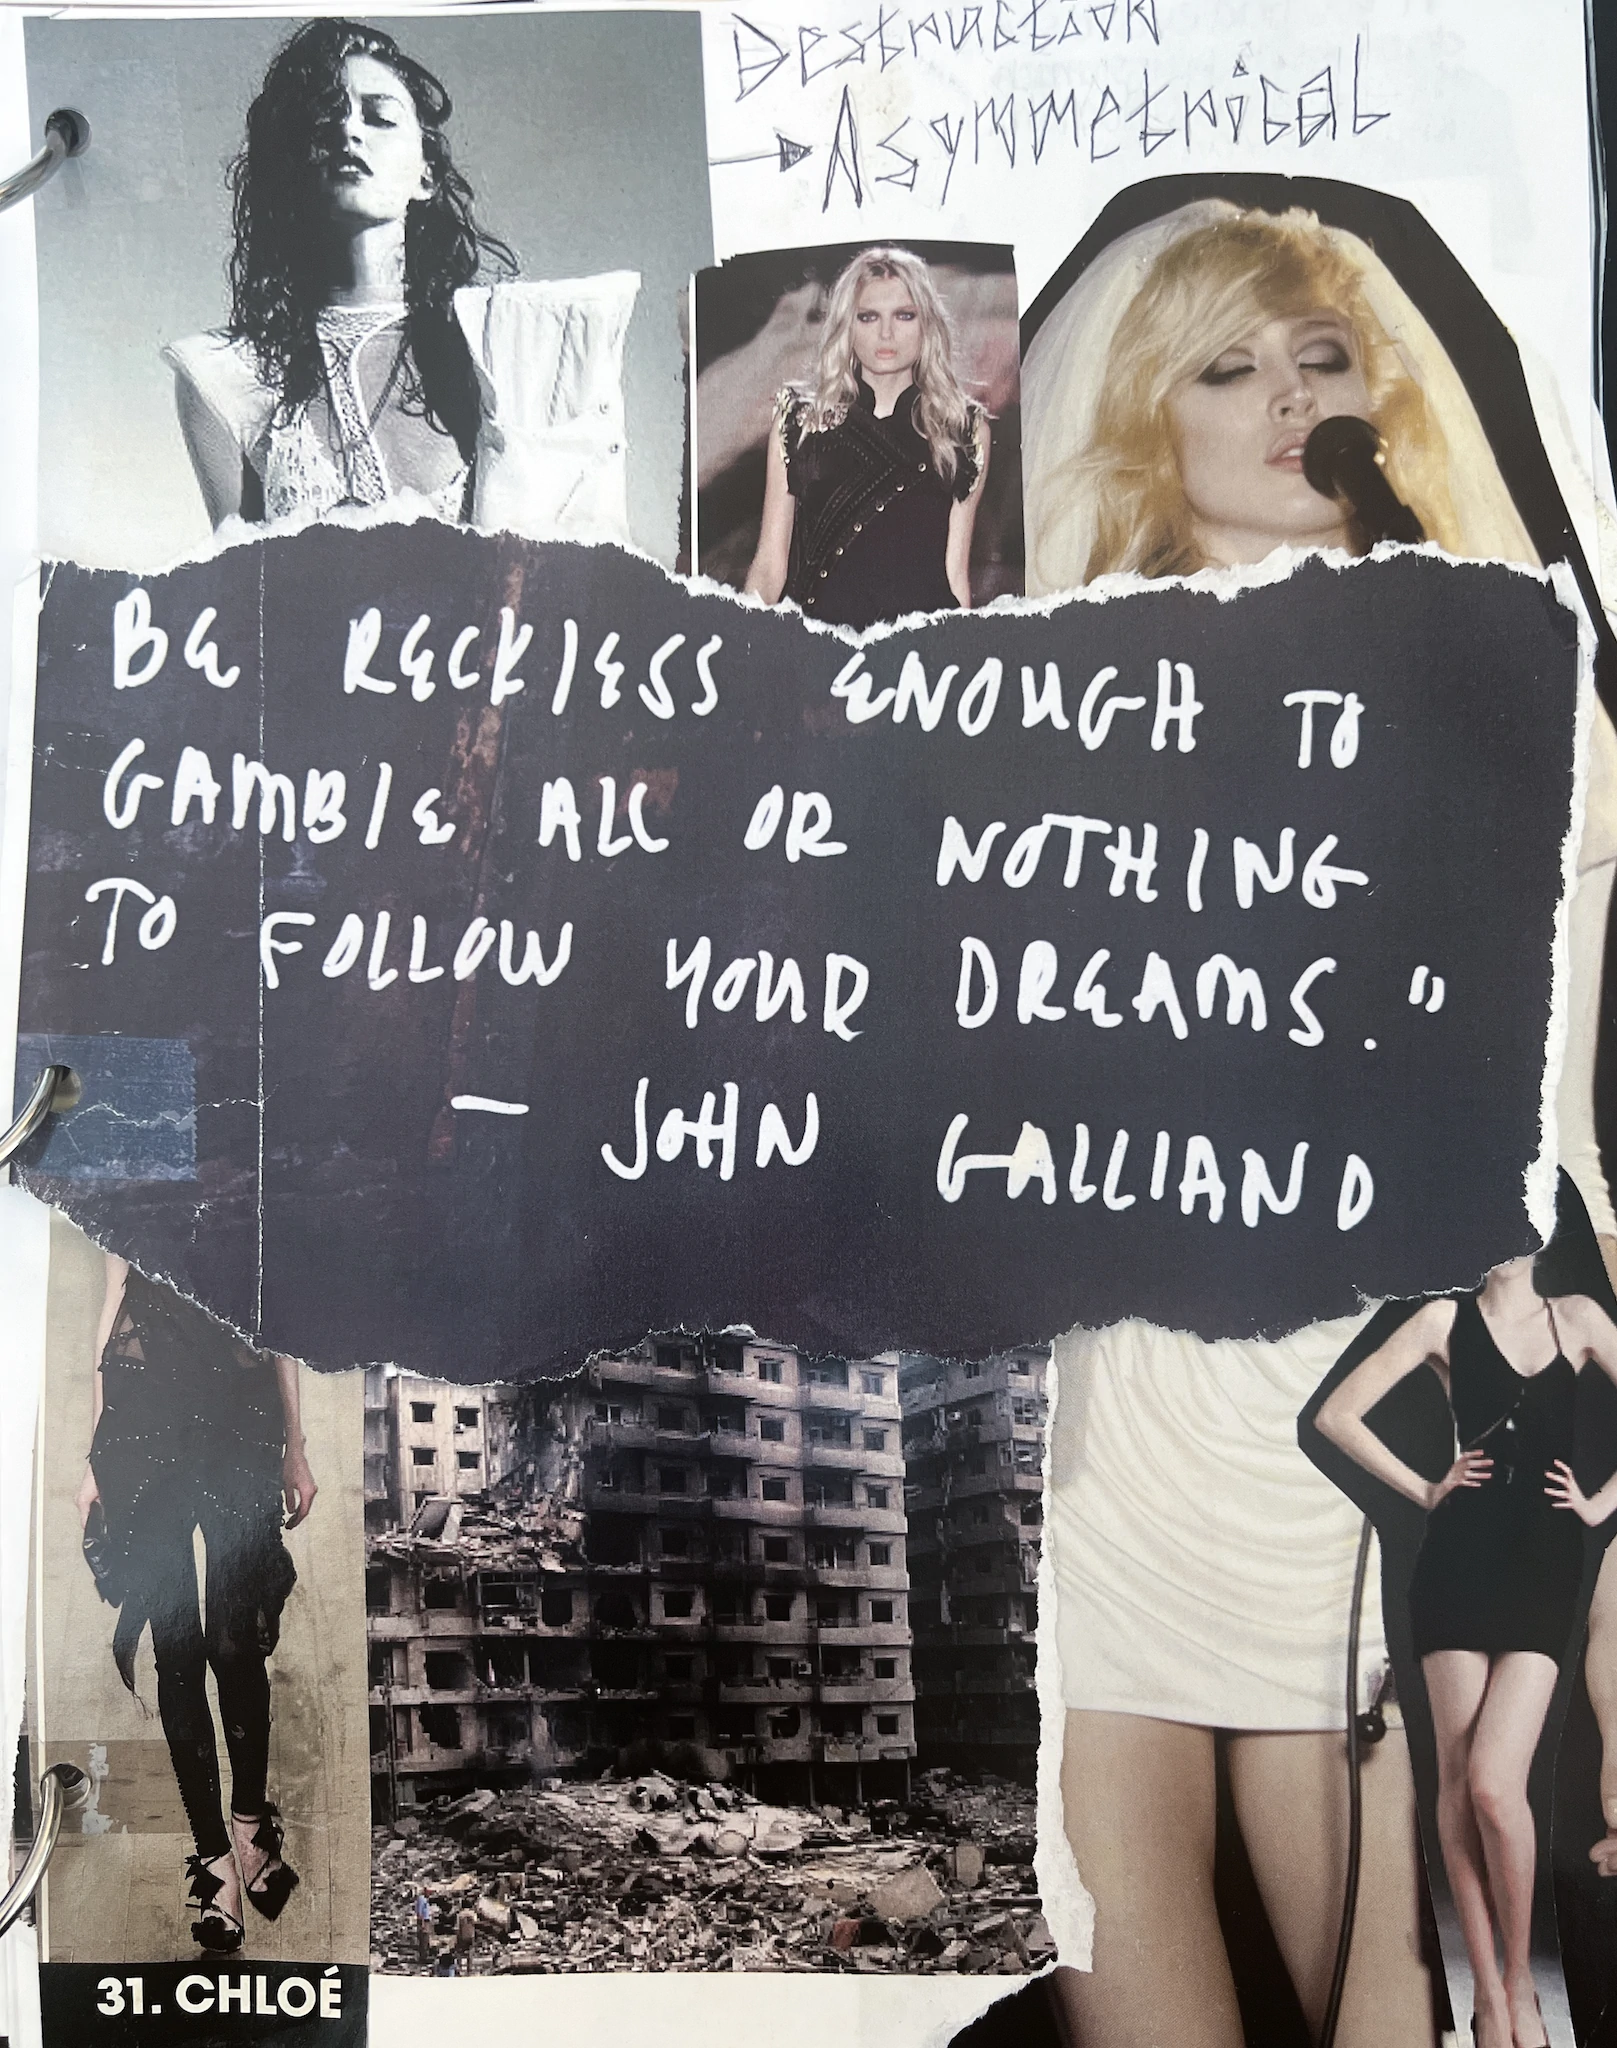 Destruction
Asymmetrical
BE RECKLESS ENOUGH TO
GAMBLE ALL OR NOTHING
TO FOLLOW YOUR DREAMS."
— JOHN GALLIANO
31. CHLOÉ